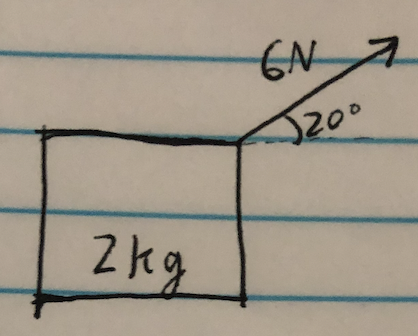 6N
20°
2kg